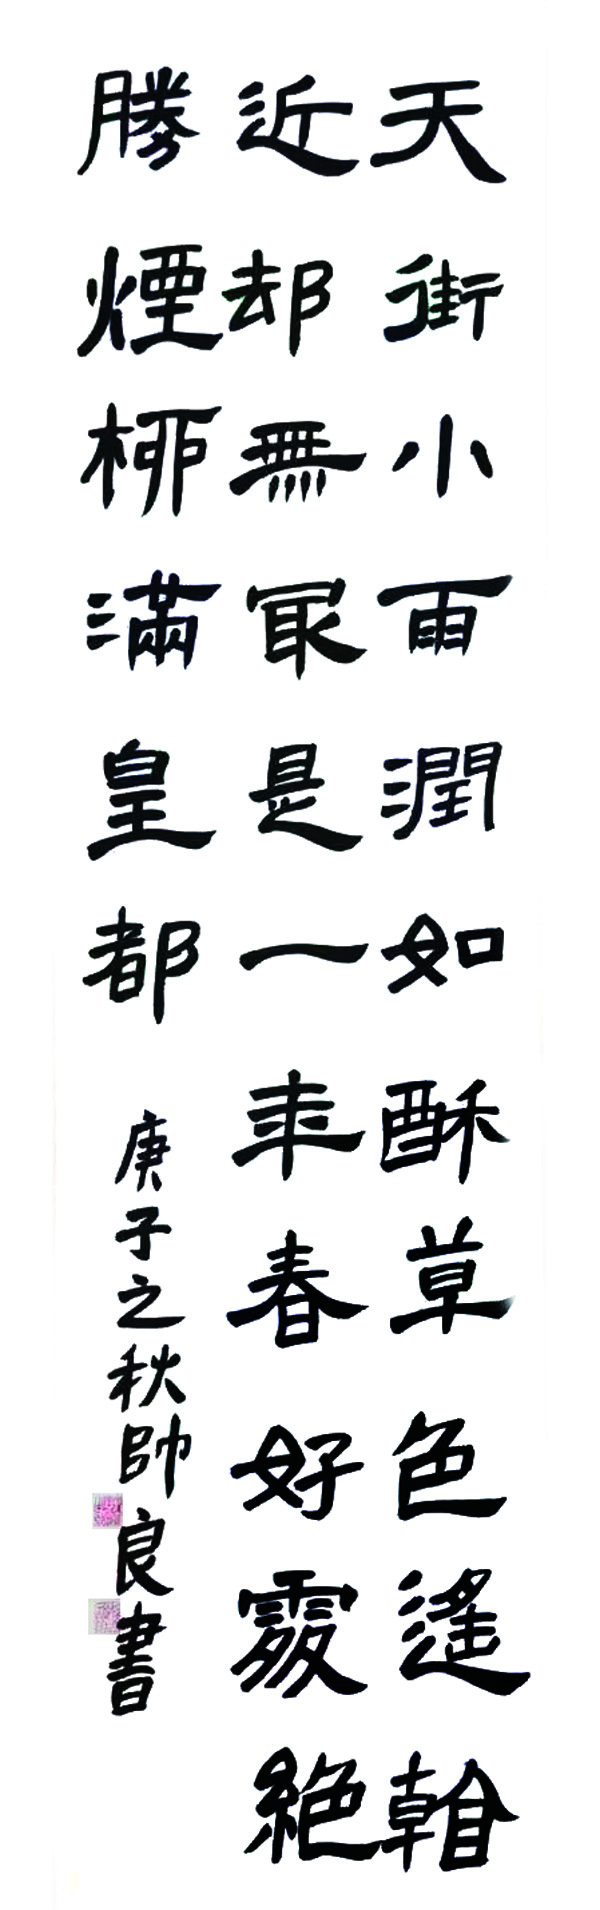 天街小雨潤如酥草色遙看
近却無最是一年春好處絕
勝煙柳滿皇都
庚子之秋帥良書